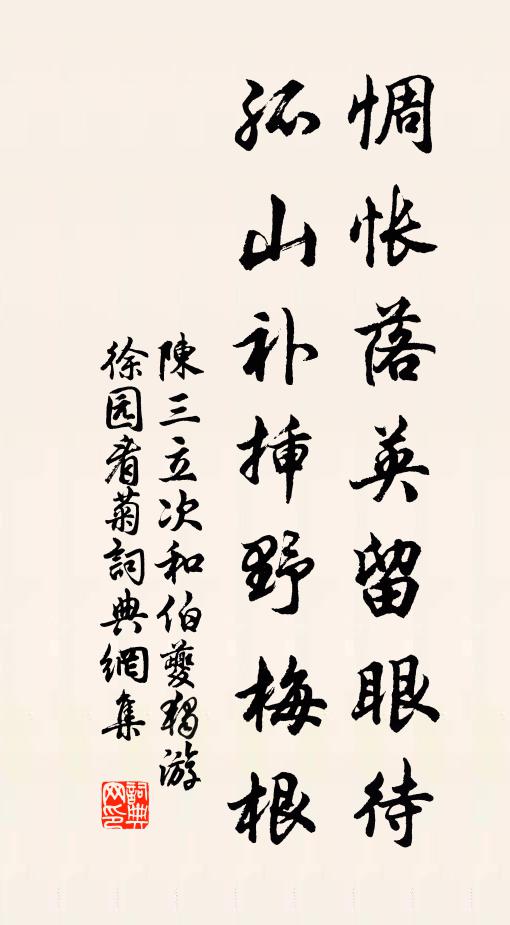 惆怅落英留眼待
孤山补插野梅根
陳三立次和伯夔独游
徐园看菊詞典網集
詞典网印